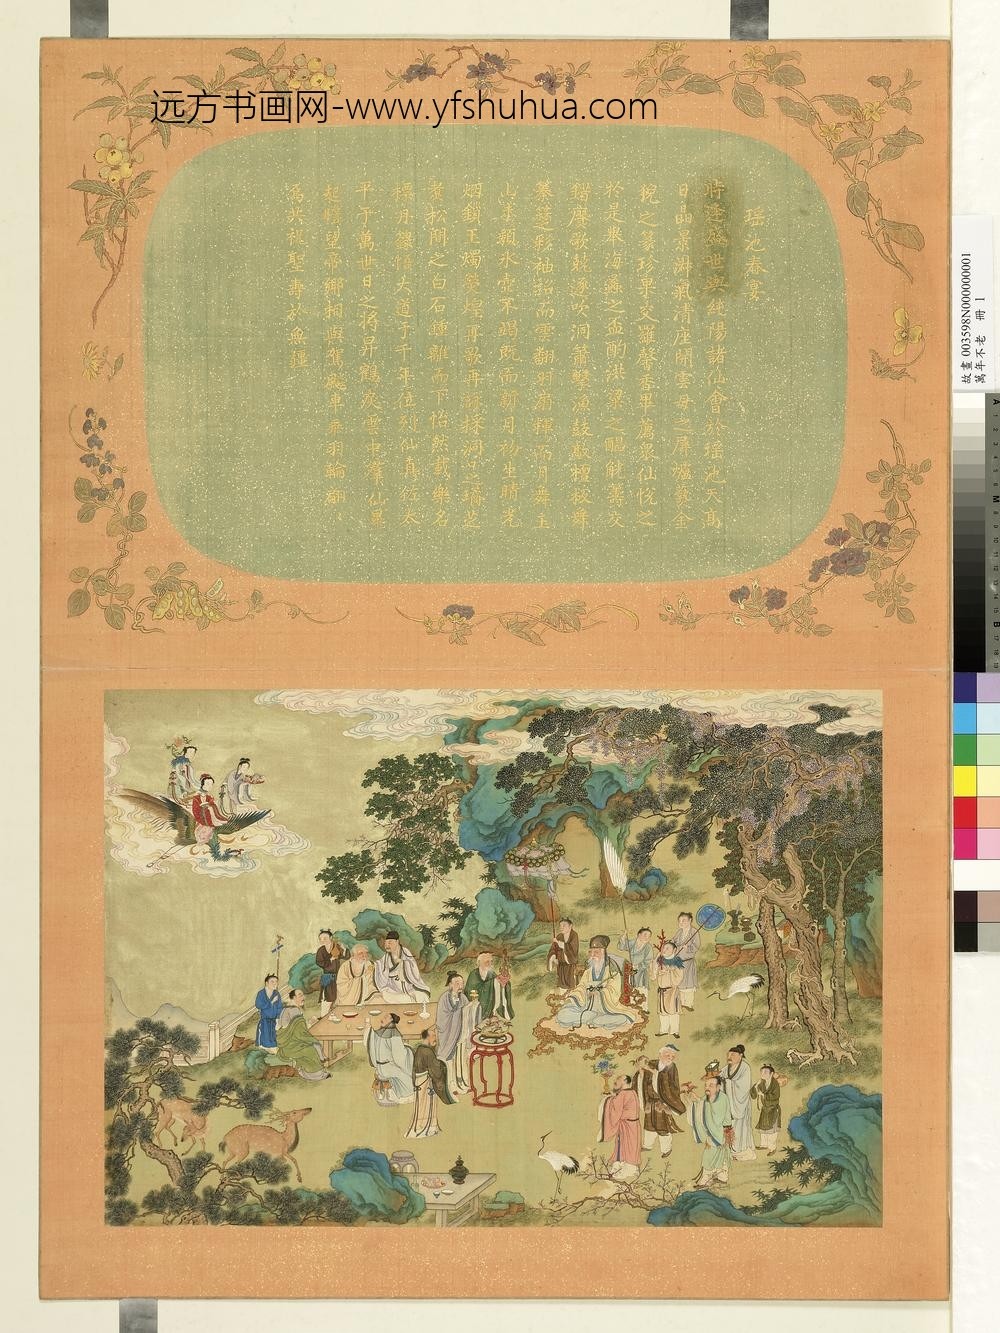 远方书画网-www.yfshuhua.com
瑤池春宴
時逢盛世與純陽諸仙會於瑤池天高
日晶景淑氣清座開雲母之屏爐爇金
猊之篆珍果交羅馨香畢薦衆仙悅之
於是舉海蠡之盃酌洪梁之醞觥籌交
錯賡歌競逐吹洞簫擊漁鼓敲檀板舞
綵 彩袖招而雲翻羽扇揮而月舞玉
山未頹氷壺不竭既而新月初生晴光
烟鎖玉燭熒煌再歌再 採洞口之瑤芝
煮松間之白石鍾離 下怡然載樂名
標丹籙悟大道于千年位列仙真 太
平于萬世日之將昇鶴唳雲中羣仙畢
起瞻望帝鄉相與駕飈車乘羽輪翩〻
爲共祝聖壽於無疆
故畫 003598N000000001
萬年不老 冊 1